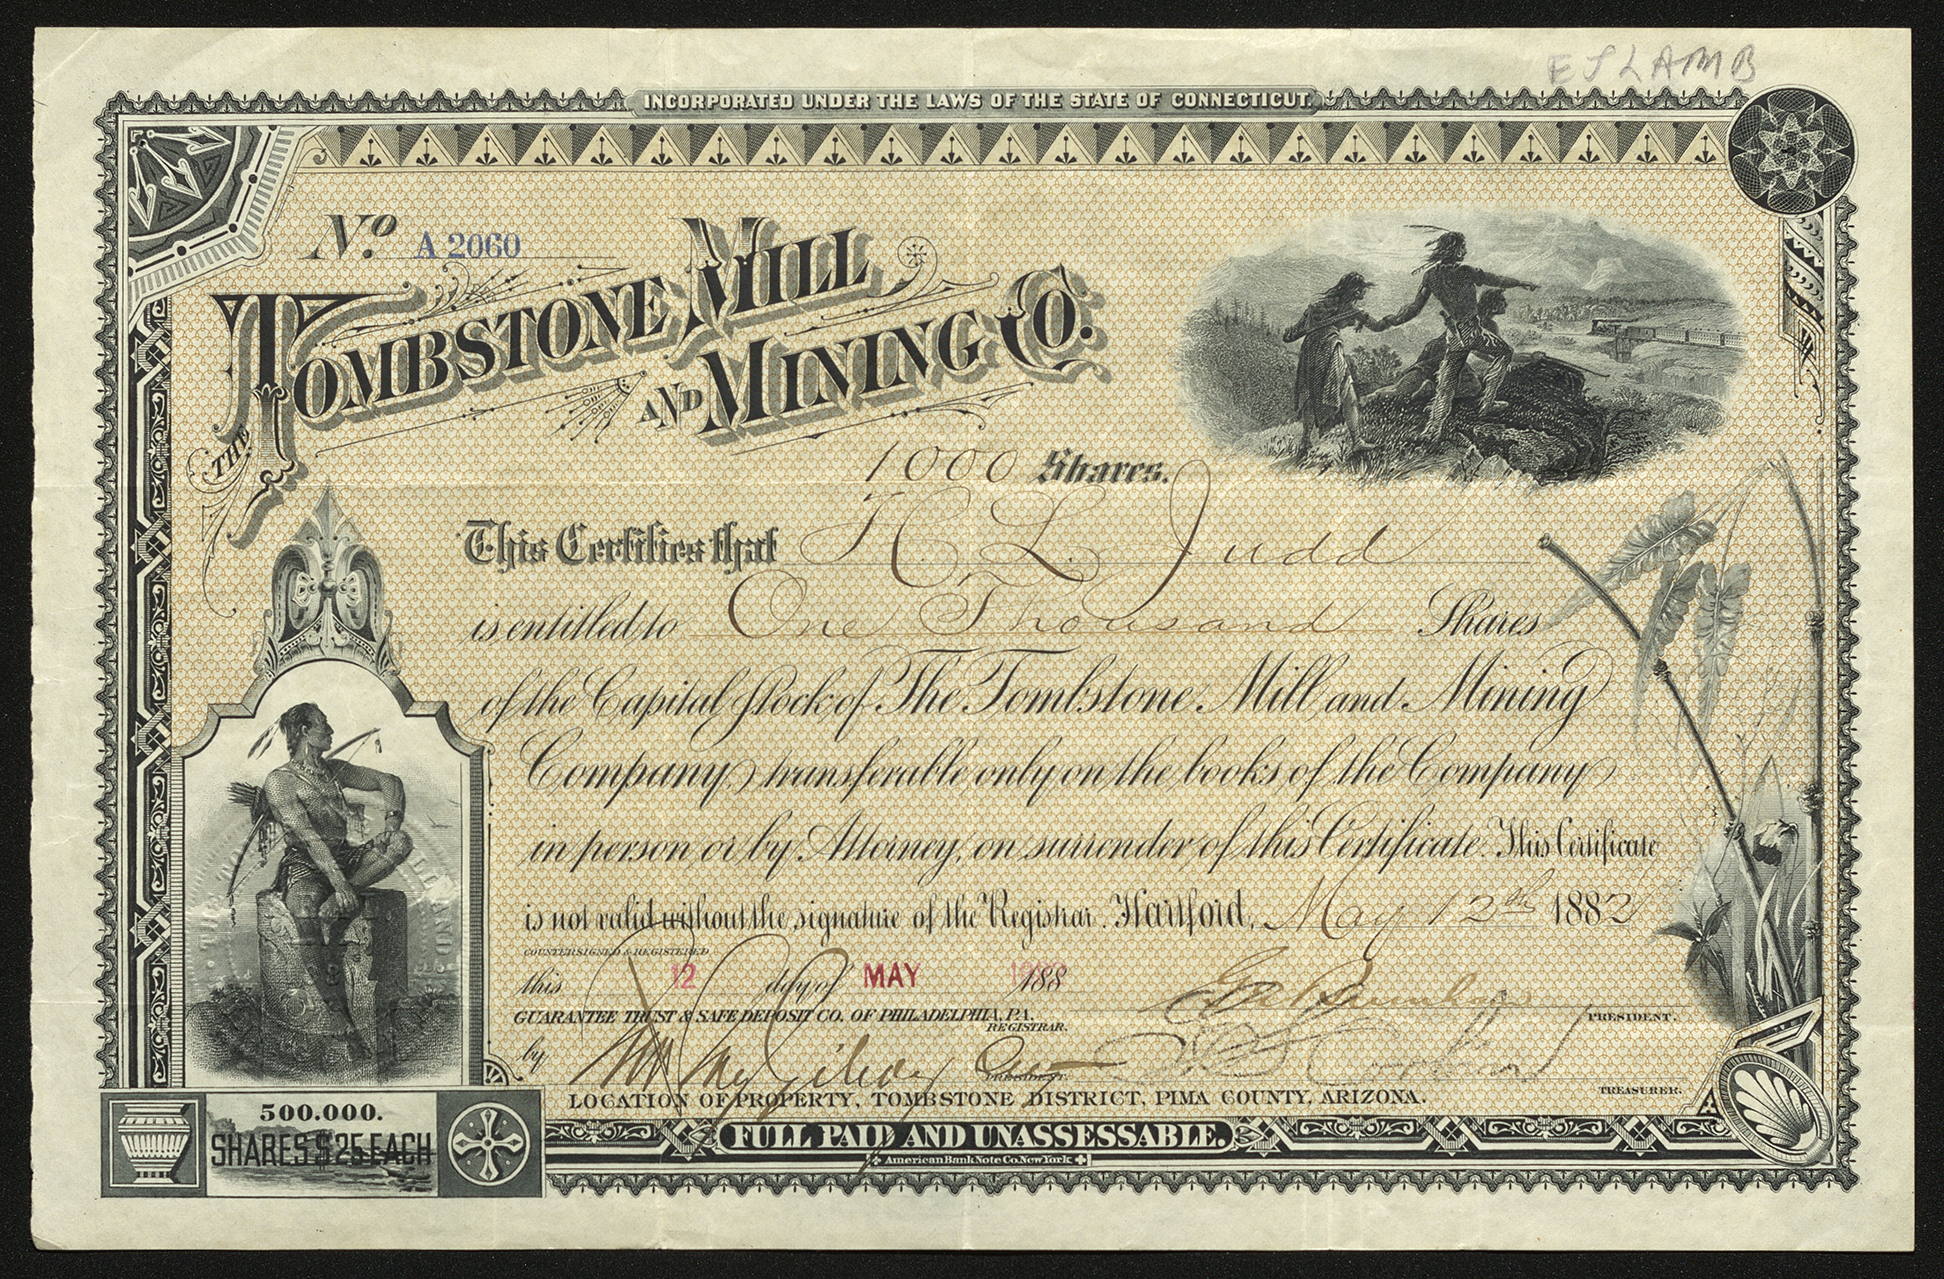 E S LAMB
INCORPORATED UNDER THE LAWS OF THE STATE OF CONNECTICUT.
No. A 2060
THE TOMBSTONE MILL
AND MINING CO.
1000 Shares.
This Certifies that H. L. Judd
is entitled to One Thousand Shares
of the Capital Stock of The Tombstone Mill and Mining
Company, transferable only on the books of the Company
in person or by Attorney, on surrender of this Certificate. This Certificate
is not valid without the signature of the Registrar. Hartford, May 12th 1883
COUNTERSIGNED & REGISTERED
this 12 day of MAY 188
PRESIDENT.
GUARANTEE TRUST & SAFE DEPOSIT CO. OF PHILADELPHIA, PA.
REGISTRAR.
by
PRESIDENT.
TREASURER.
LOCATION OF PROPERTY, TOMBSTONE DISTRICT, PIMA COUNTY, ARIZONA.
500.000.
SHARES $25 EACH
FULL PAID AND UNASSESSABLE.
American Bank Note Co. New York